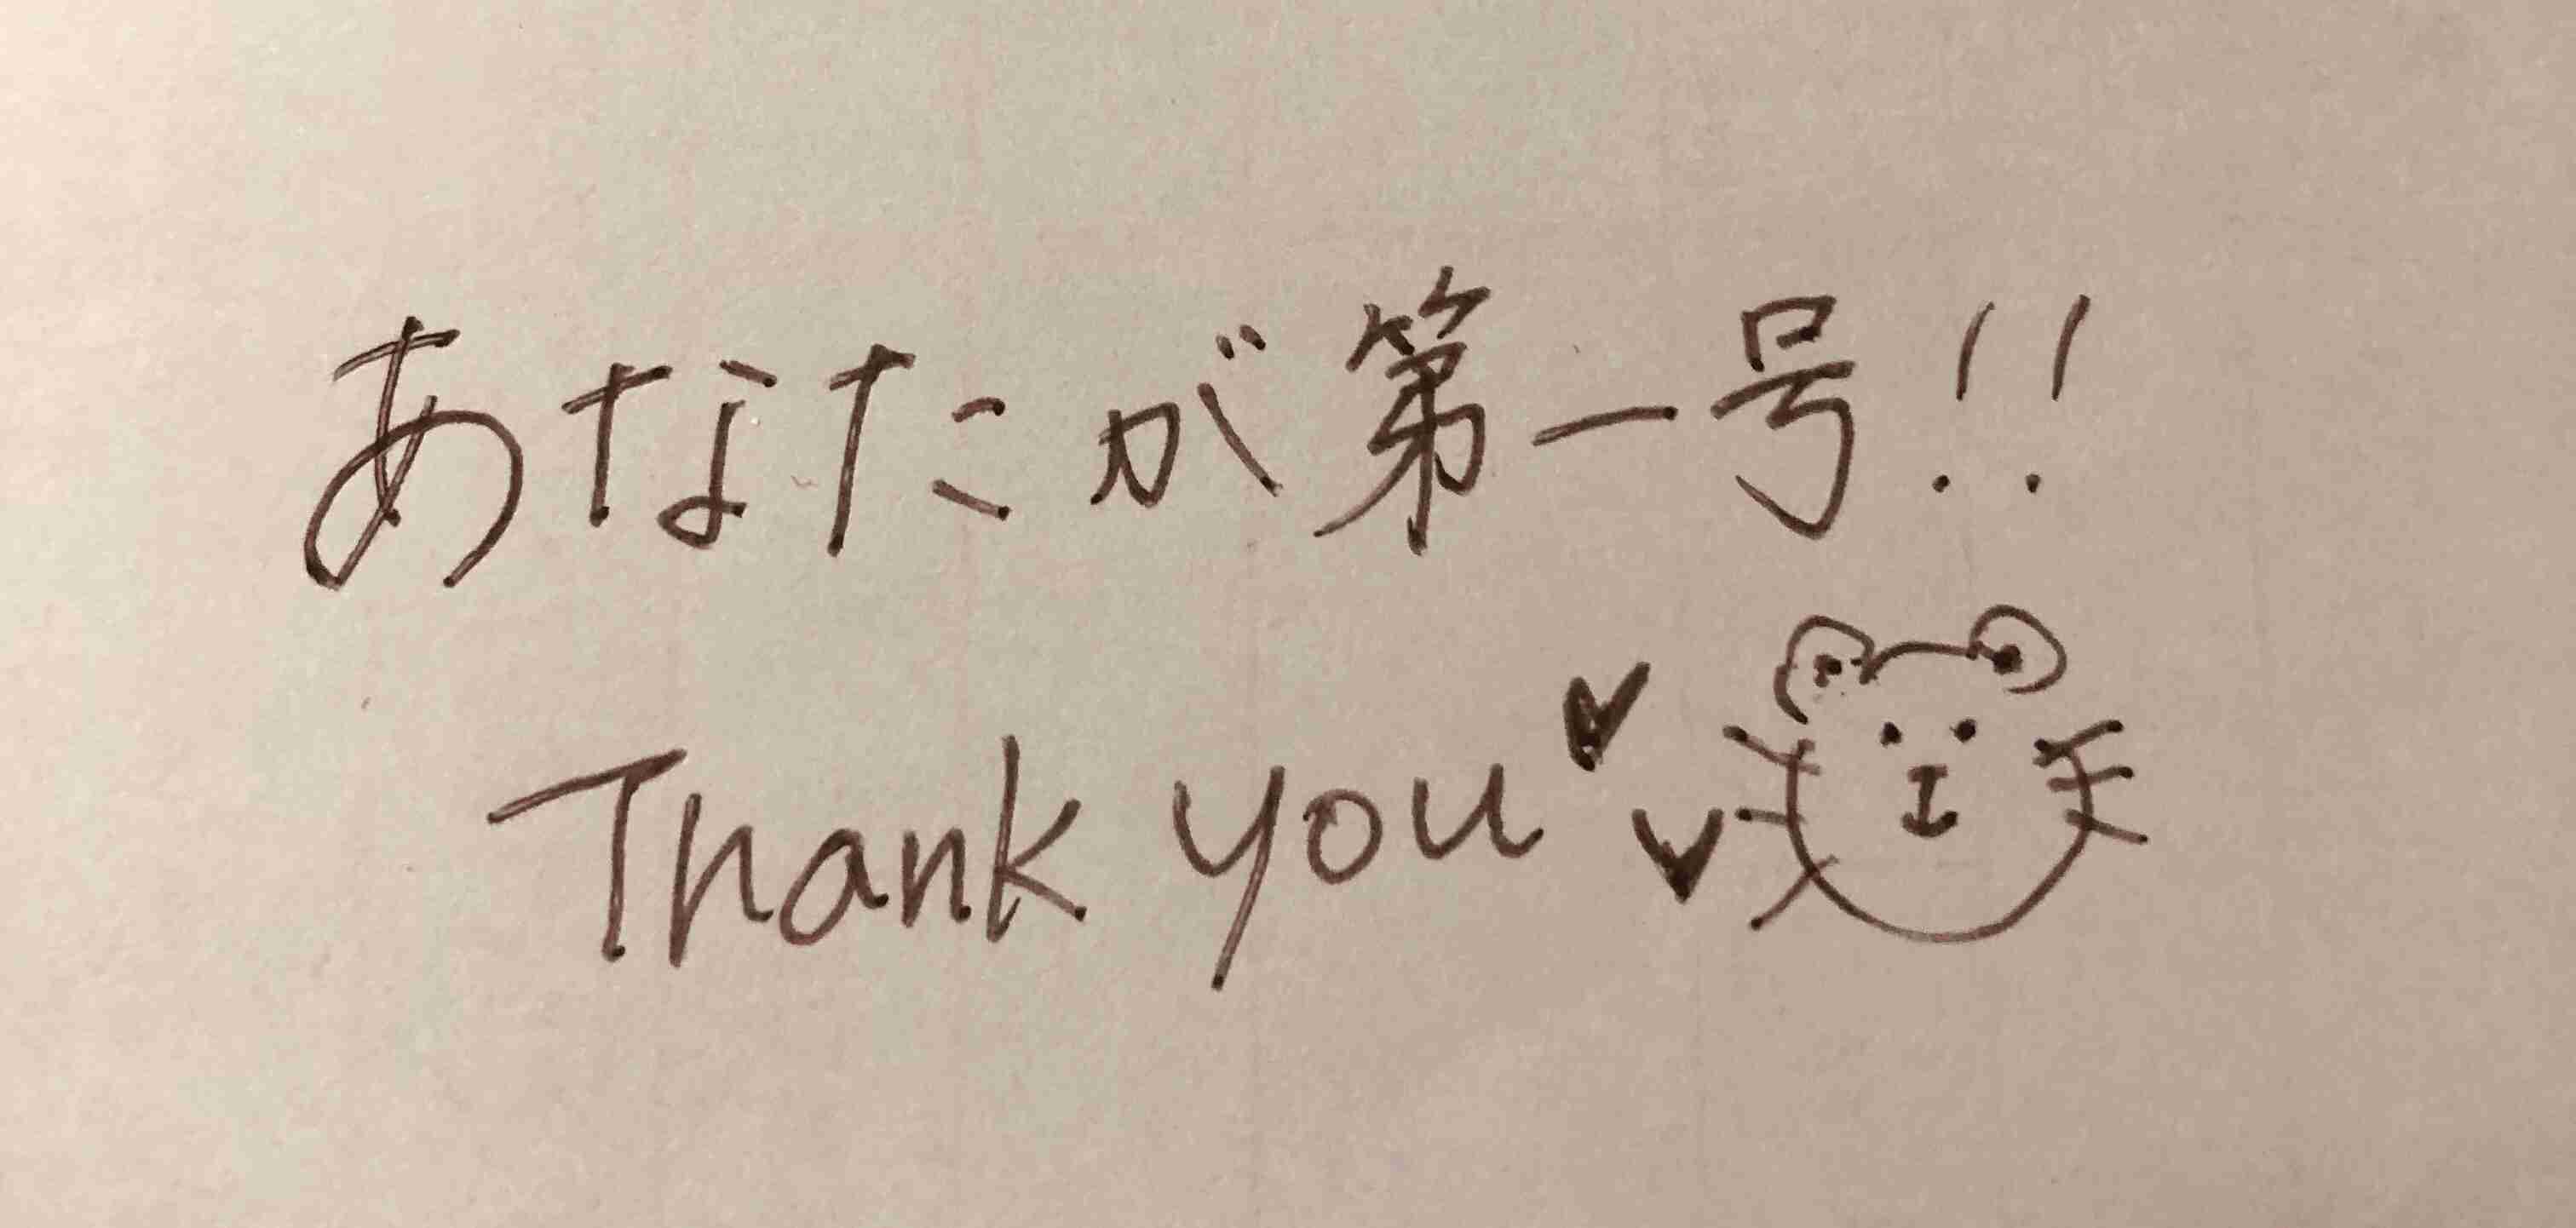 あなたが第一号!!
Thank you